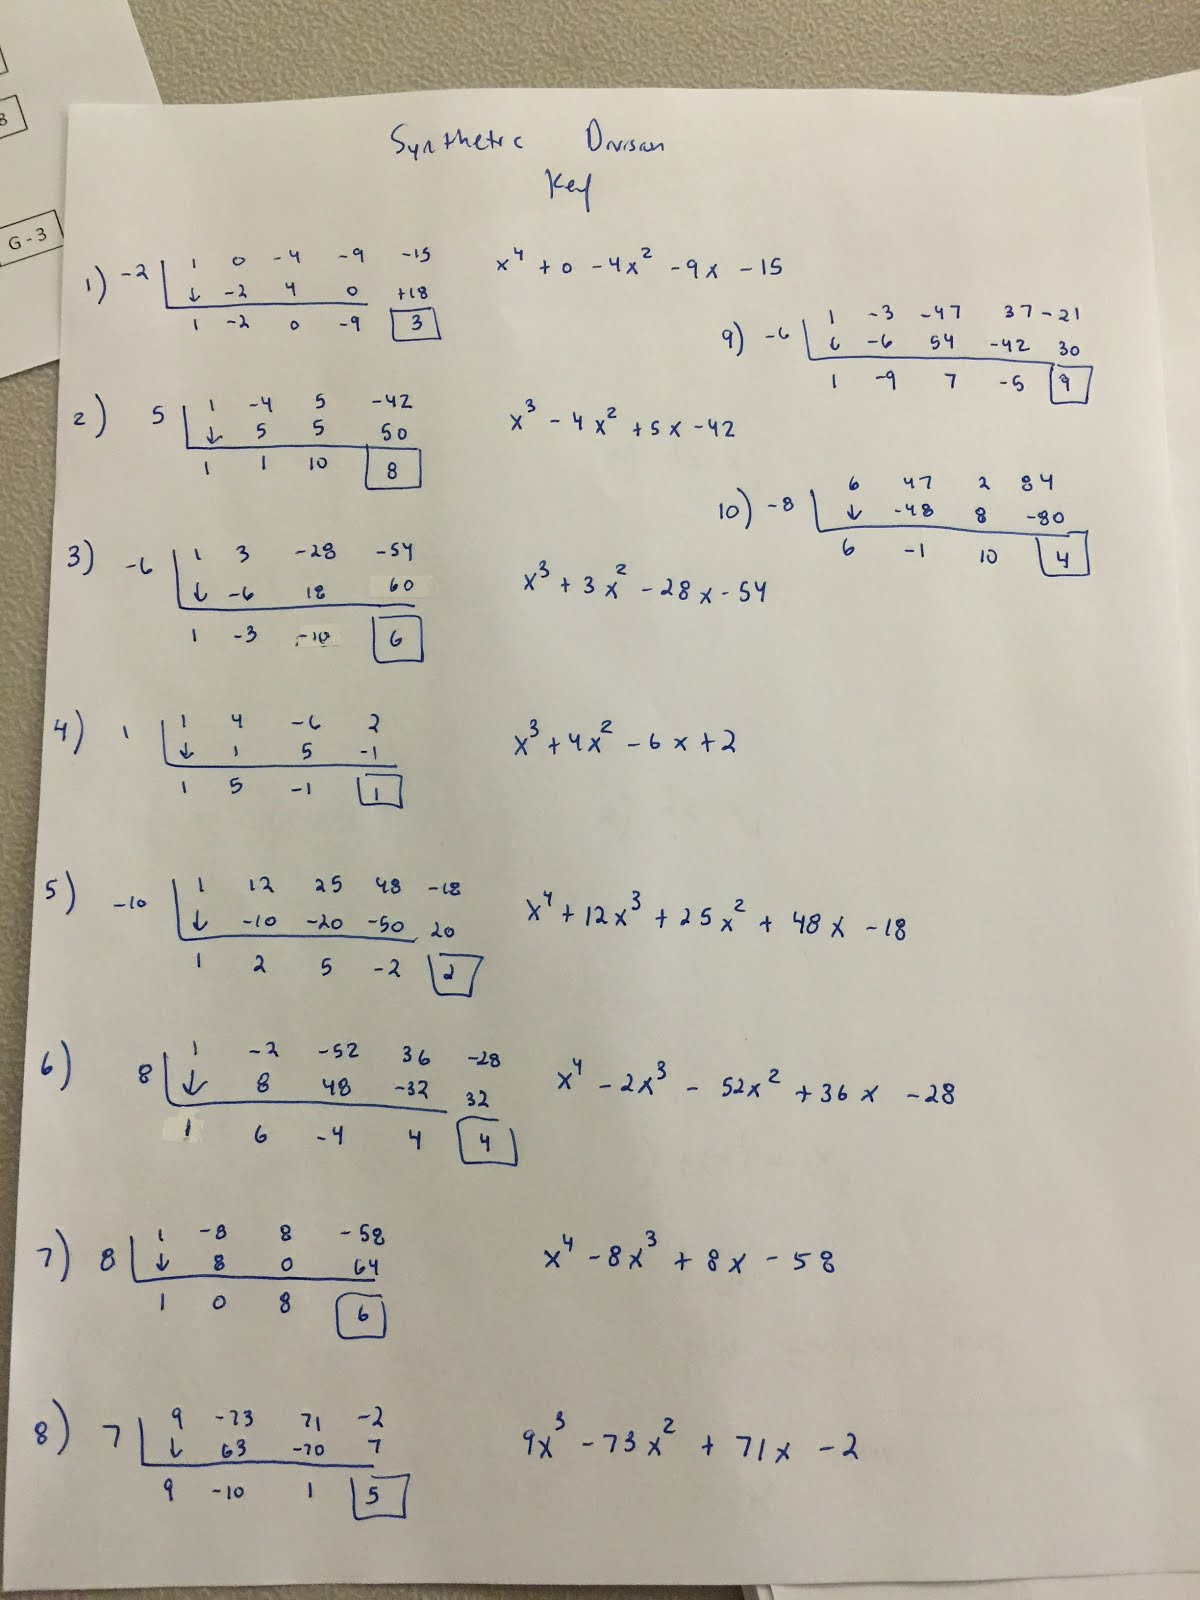 8
G-3
Synthetic Division
Key
1) -2 | 1 0 -4 -9 -15
↓ -2 4 0 +18
1 -2 0 -9 3
x⁴ + 0 - 4x² - 9x - 15
2) 5 | 1 -4 5 -42
↓ 5 5 50
1 1 10 8
x³ - 4x² + 5x - 42
3) -6 | 1 3 -28 -54
↓ -6 18 60
1 -3 -10 6
x³ + 3x² - 28x - 54
4) 1 | 1 4 -6 2
↓ 1 5 -1
1 5 -1 1
x³ + 4x² - 6x + 2
5) -10 | 1 12 25 48 -18
↓ -10 -20 -50 20
1 2 5 -2 2
x⁴ + 12x³ + 25x² + 48x - 18
6) 8 | 1 -2 -52 36 -28
↓ 8 48 -32 32
1 6 -4 4 4
x⁴ - 2x³ - 52x² + 36x - 28
7) 8 | 1 -8 8 -58
↓ 8 0 64
1 0 8 6
x⁴ - 8x³ + 8x - 58
8) 7 | 9 -73 71 -2
↓ 63 -70 7
9 -10 1 5
9x³ - 73x² + 71x - 2
9) -6 | 1 -3 -47 37 -21
↓ -6 54 -42 30
1 -9 7 -5 9
10) -8 | 6 47 2 84
↓ -48 8 -80
6 -1 10 4